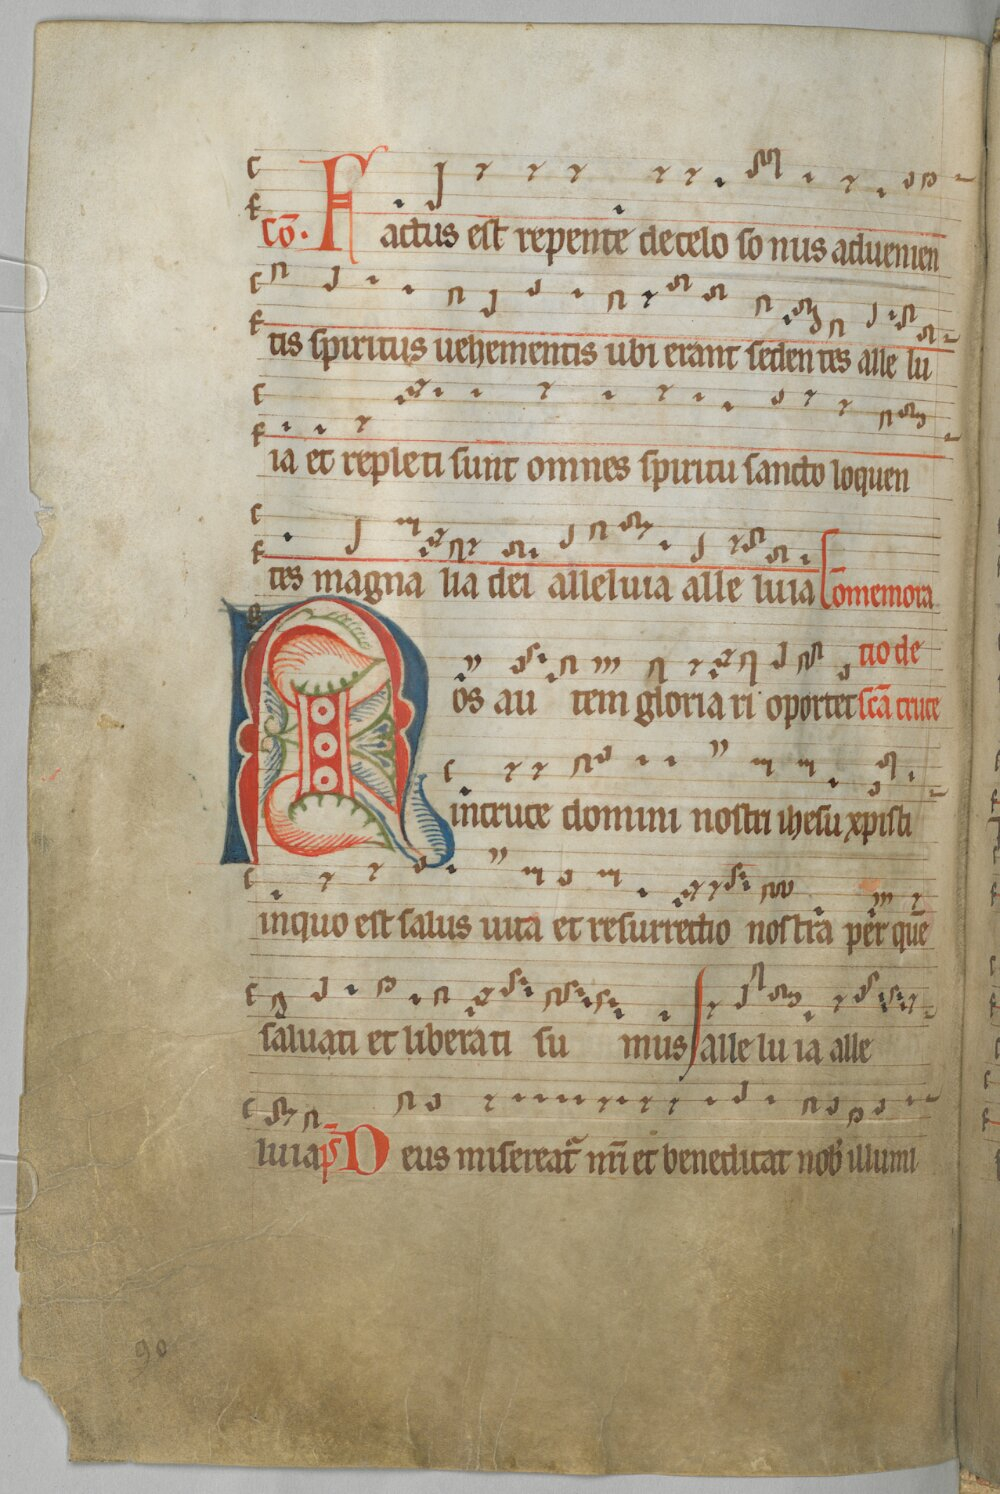 cō. Factus est repente de celo so nus aduenien
tis spiritus uehementis ubi erant seden tes alle lu
ia et repleti sunt omnes spiritu sancto loquen
tes magna lia dei alleluia alle luia Comemora
tio de
Nos au tem gloria ri oportet scā cruce
in cruce domini nostri ihesu xpisti
in quo est salus uita et resurrectio nostra per quē
saluati et liberati su mus alle lu ia alle
luia ps Deus misereat᷑ nr̄i et benedicat nob̄ illumi
90